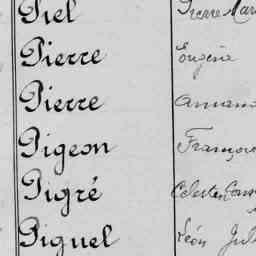 Piel Pierre Mar
Pierre Eugène
Pierre Armand
Pigeon Franço
Pigré Célestin
Piguel Léon Jul